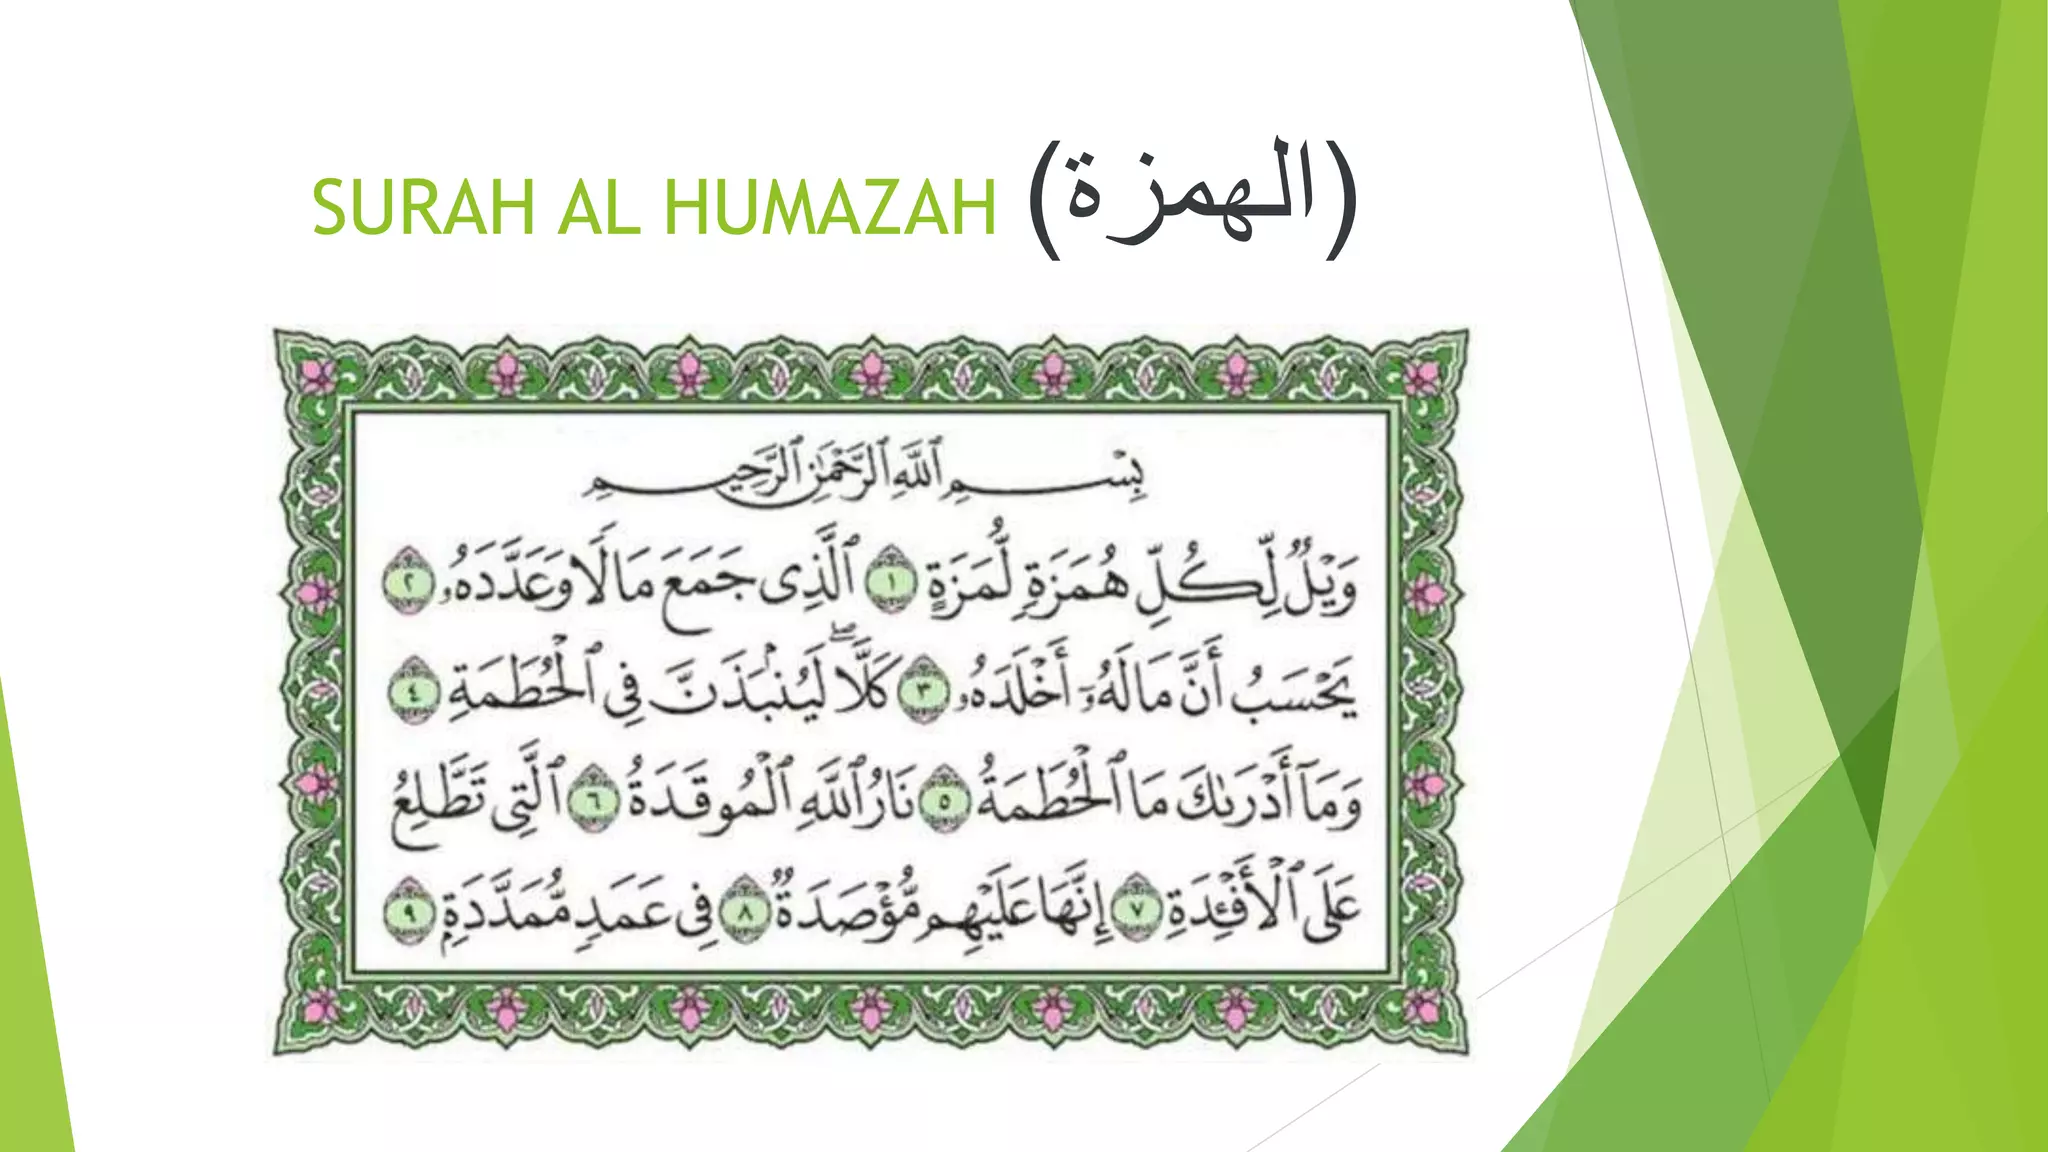 SURAH AL HUMAZAH (الهمزة)
بِسْمِ ٱللَّهِ ٱلرَّحْمَٰنِ ٱلرَّحِيمِ
وَيْلٌ لِّكُلِّ هُمَزَةٍ لُّمَزَةٍ ١ ٱلَّذِى جَمَعَ مَالًا وَعَدَّدَهُۥ ٢
يَحْسَبُ أَنَّ مَالَهُۥٓ أَخْلَدَهُۥ ٣ كَلَّا ۖ لَيُنۢبَذَنَّ فِى ٱلْحُطَمَةِ ٤
وَمَآ أَدْرَىٰكَ مَا ٱلْحُطَمَةُ ٥ نَارُ ٱللَّهِ ٱلْمُوقَدَةُ ٦ ٱلَّتِى تَطَّلِعُ
عَلَى ٱلْأَفْـِٔدَةِ ٧ إِنَّهَا عَلَيْهِم مُّؤْصَدَةٌ ٨ فِى عَمَدٍ مُّمَدَّدَةٍۭ ٩